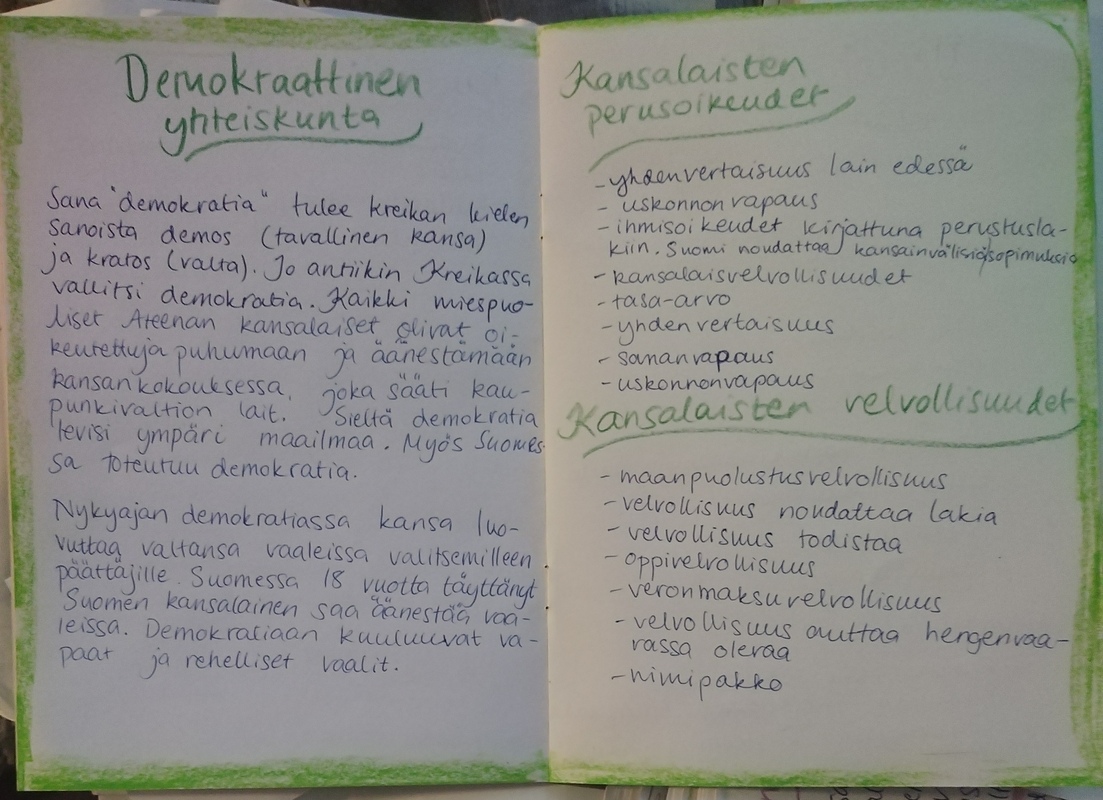 Demokraattinen
yhteiskunta
Sana "demokratia" tulee kreikan kielen
sanoista demos (tavallinen kansa)
ja kratos (valta). Jo antiikin Kreikassa
vallitsi demokratia. Kaikki miespuo-
liset Ateenan kansalaiset olivat oi-
keutettuja puhumaan ja äänestämään
kansankokouksessa, joka sääti kau-
punkivaltion lait. Sieltä demokratia
levisi ympäri maailmaa. Myös Suomes-
sa toteutuu demokratia.
Nykyajan demokratiassa kansa luo-
vuttaa valtansa vaaleissa valitsemilleen
päättäjille. Suomessa 18 vuotta täyttänyt
Suomen kansalainen saa äänestää vaa-
leissa. Demokratiaan kuuluuvat va-
paat ja rehelliset vaalit.
Kansalaisten
perusoikeudet
- yhdenvertaisuus lain edessä
- uskonnon vapaus
- ihmisoikeudet kirjattuna perustusla-
kiin. Suomi noudattaa kansainvälisiä sopimuksia
- kansalaisvelvollisuudet
- tasa-arvo
- yhdenvertaisuus
- sananvapaus
- uskonnonvapaus
Kansalaisten velvollisuudet
- maanpuolustusvelvollisuus
- velvollisuus noudattaa lakia
- velvollisuus todistaa
- oppivelvollisuus
- veronmaksuvelvollisuus
- velvollisuus auttaa hengenvaa-
rassa olevaa
- nimipakko